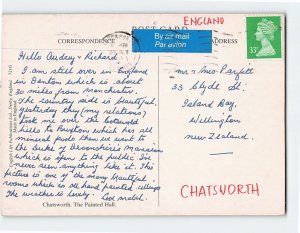 ENGLAND
POST CARD
CORRESPONDENCE
By air mail
Par avion
ADDRESS
33P
Hello Audrey & Richard
I am still over in England
in Buxton which is about
30 miles from Manchester.
The country side is beautiful.
yesterday they (my relations)
took me over the cotswold
hills to Buxton which has all
mineral pools then we went to
the Duke of Devonshire's Mansion
which is open to the public I've
never seen anything like it. This
picture is one of the many beautiful
rooms which is all hand painted ceilings
the weather is lovely.
Mr & Mrs Pargett
33 Clyde St.
Island Bay,
Wellington
New Zealand.
CHATSWORTH
Chatsworth. The Painted Hall.